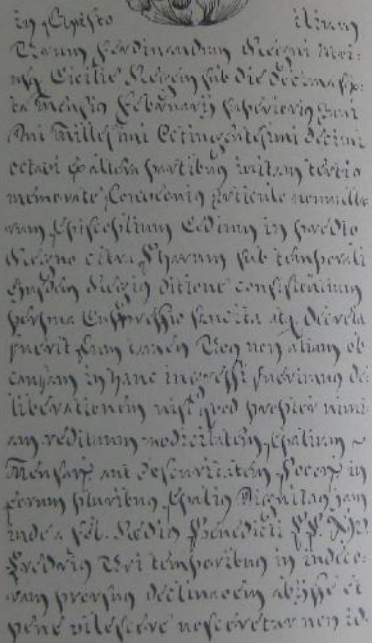 in Christo filium
Nrum Ferdinandum Regni utri-
usq Cicilie Regem sub die decima sex-
ta Mensis Februarij superioris anni
Dni Millesimi Octingentesimi decimi
octavi ex altera partibus initam tertio
memorate Conventionis articulo nonnulla-
rum Ecclesiarum Sedium in predicto
Regno citra Pharum sub temporali
ejusdem Regis ditione consistentium
suppressio sancita atq decreta
fuerit, cum tamen Nos non aliam ob
causam in hanc ingressi fuerimus de-
liberationem nisi quod propter nimi-
am redituum modicitatem Epalium
Mensarum aut obscuritatem locorum in
eorum pluribus Epalis Dignitas jam
inde a fel. Rec. Benedicti PP. XIV.
Predecessoris Nri temporibus in indeco-
ram prorsus declinationem abijsse et
pene vilescere nosceretur non id-